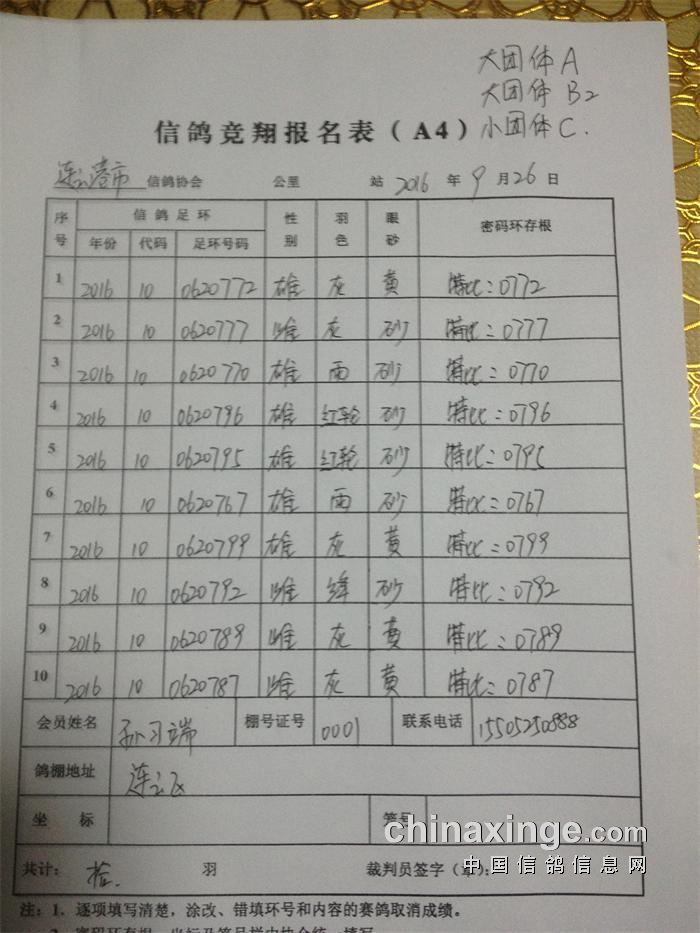 大团体 A
大团体 B2
小团体 C.
信鸽竞翔报名表（A4）
连云港市 信鸽协会 公里 站 2016 年 9 月 26 日
序号 信鸽足环 性别 羽色 眼砂 密码环存根
年份 代码 足环号码
1 2016 10 0620772 雄 灰 黄 特比:0772
2 2016 10 0620777 雌 灰 砂 特比:0777
3 2016 10 0620770 雄 雨 砂 特比:0770
4 2016 10 0620796 雄 红轮 砂 特比:0796
5 2016 10 0620795 雄 红轮 砂 特比:0795
6 2016 10 0620767 雄 雨 砂 特比:0767
7 2016 10 0620799 雄 灰 黄 特比:0799
8 2016 10 0620792 雌 绛 砂 特比:0792
9 2016 10 0620789 雌 灰 黄 特比:0789
10 2016 10 0620787 雌 灰 黄 特比:0787
会员姓名 孙习端 棚号证号 0001 联系电话 15505250888
鸽棚地址 连云区
坐 标 笼号
共计: 拾. 羽 裁判员签字（章）:
chinaxinge.com
中国信鸽信息网
注：1. 逐项填写清楚，涂改、错填环号和内容的赛鸽取消成绩。